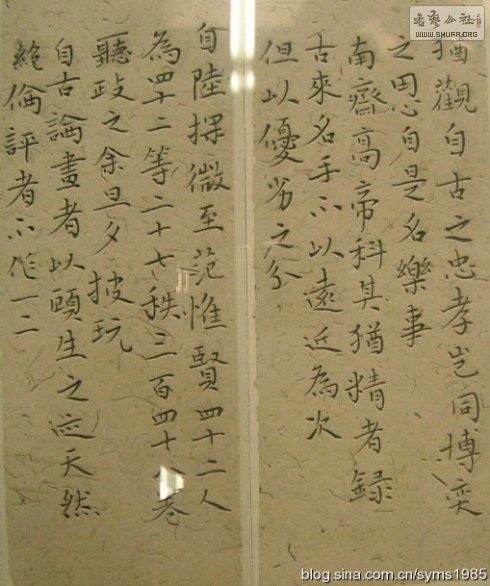 書藝公社
WWW.SHUFA.ORG
猶觀自古之忠孝豈同博奕
之思自是名樂事
南齋高帝科其猶精者録
古來名手不以遠近為次
但以優劣之分
自陸探微至范惟賢四十二人
為四十二等二十七秩三百四十卷
聽政之余旦夕披玩
自古論畫者以頋生之迹天然
絕倫評者不作一二
blog.sina.com.cn/syms1985